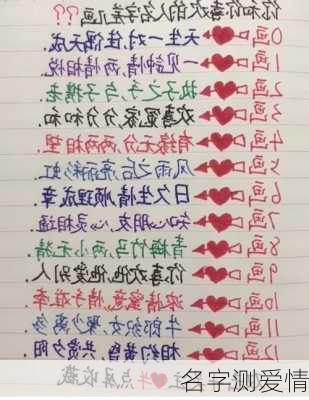 你和你喜欢的人名字差几画??
0画 天生一对,佳偶天成.
1画 一见钟情,两情相悦.
2画 执子之手,与子携老.
3画 欢喜冤家,分分和和.
4画 有缘无分,两两相望.
5画 风雨之后,亮丽彩虹.
6画 日久生情,顺理成章.
7画 知心朋友,心灵相通.
8画 青梅竹马,两小无猜.
9画 你喜欢他,他爱别人
10画 浓情蜜意,情子难牵.
11画 牛郎织女,聚少离多
12画 相约黄昏,共赏夕阳.
点点收藏
名字测爱情